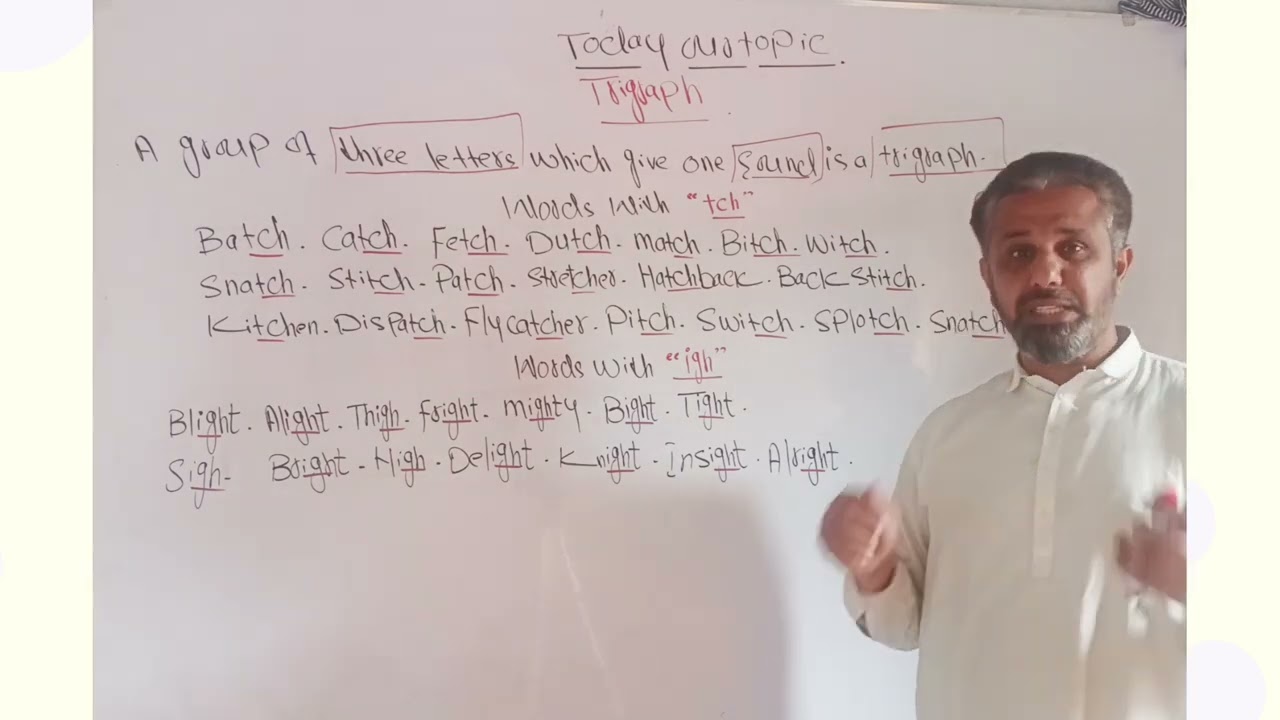 Today our topic.
Trigraph
A group of three letters which give one sound is a trigraph.
Words With "tch"
Batch. Catch. Fetch. Dutch. Match. Bitch. Witch.
Snatch. Stitch. Patch. Stretcher. Hatchback. Back Stitch.
Kitchen. Dispatch. Flycatcher. Pitch. Switch. Splotch. Snatch
Words with "igh"
Blight. Alight. Thigh. Fright. Mighty. Bight. Tight.
Sigh- Bright. High. Delight. Knight. Insight. Alright.